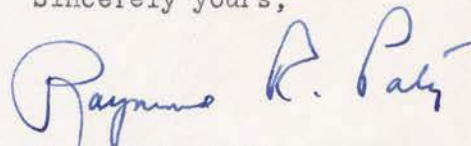 Sincerely yours,
Raymond R. Paty